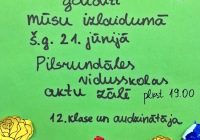 mūsu izlaidumā
š.g. 21. jūnijā
Pilsrundāles
vidusskolas
aktu zālē plkst 19.00
12. klase un audzinātāja